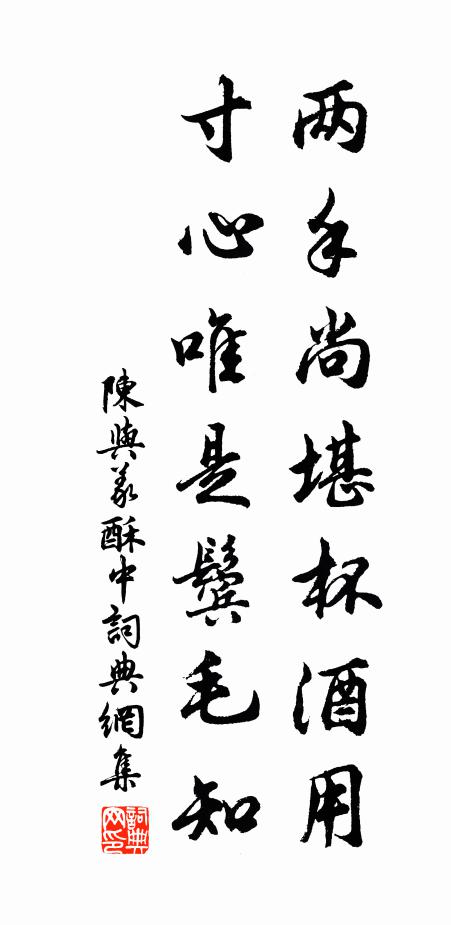 两手尚堪杯酒用
寸心唯是鬓毛知
陳與義酥中詞典網集
詞典网印